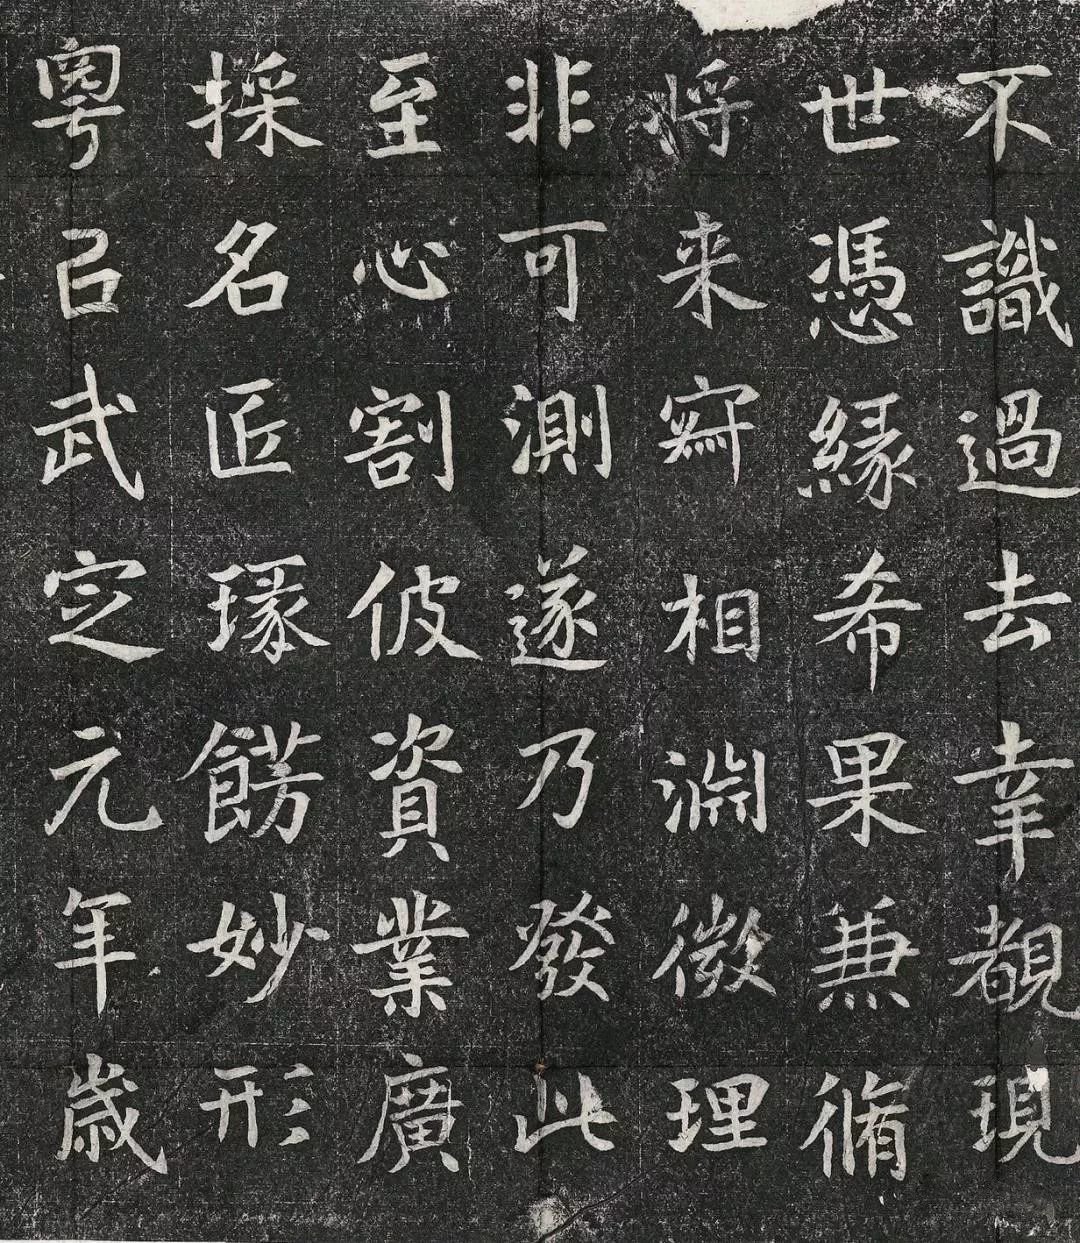 不識過去幸覩現
世憑緣希果兼脩
将来寂相淵微理
非可測遂乃發此
至心割彼資業廣
採名匠瑑餝妙形
粤以武定元年歳